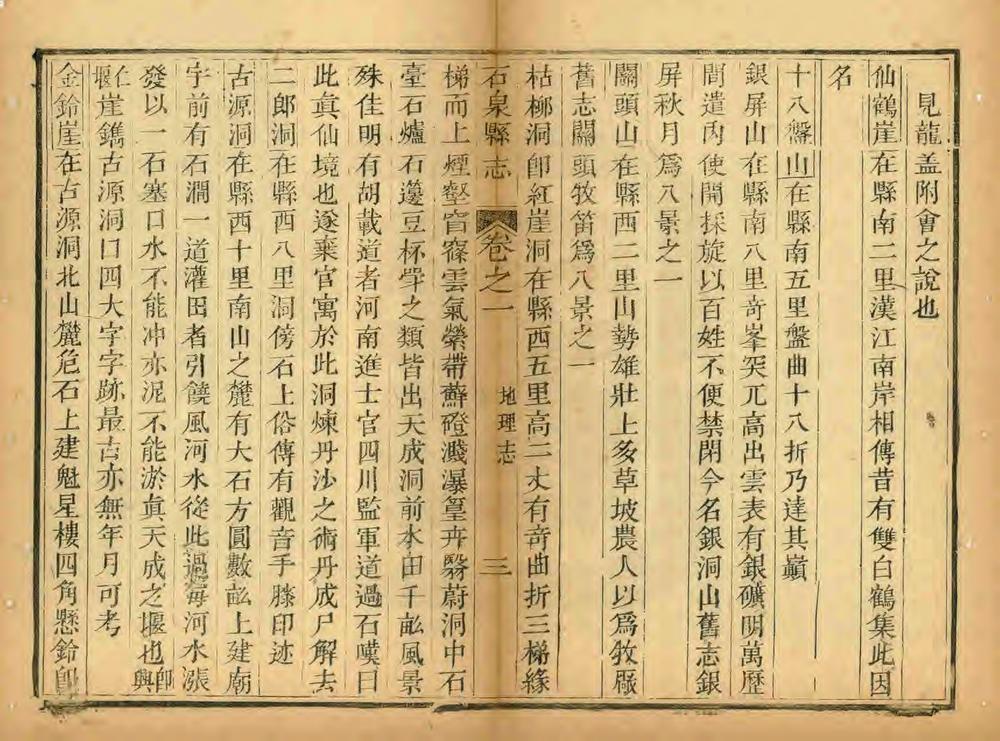 見龍盖附會之說也
仙鶴崖在縣南二里漢江南岸相傳昔有雙白鶴集此因
名
十八盤山在縣南五里盤曲十八折乃達其巓
銀屏山在縣南八里奇峯突兀高出雲表有銀礦明萬歷
間遣內使開採旋以百姓不便禁閉今名銀洞山舊志銀
屏秋月爲八景之一
關頭山在縣西二里山勢雄壯上多草坡農人以爲牧厰
舊志關頭牧笛爲八景之一
枯柳洞卽紅崖洞在縣西五里高二丈有竒曲折三梯緣
石泉縣志 卷之一 地理志 三
梯而上煙壑窅窱雲氣縈帶蘚磴濺瀑篁卉翳蔚洞中石
臺石爐石籩豆杯斝之類皆出天成洞前水田千畝風景
殊佳明有胡載道者河南進士官四川監軍道過石嘆曰
此眞仙境也遂棄官寓於此洞煉丹沙之術丹成尸解去
二郎洞在縣西八里洞傍石上俗傳有觀音手膝印迹
古源洞在縣西十里南山之麓有大石方圓數畝上建廟
宇前有石澗一道灌田者引饒風河水從此過每河水漲
發以一石塞口水不能冲亦泥不能淤眞天成之堰也卽興
仁堰崖鐫古源洞口四大字字跡最古亦無年月可考
金鈴崖在古源洞北山麓危石上建魁星樓四角懸鈴卽